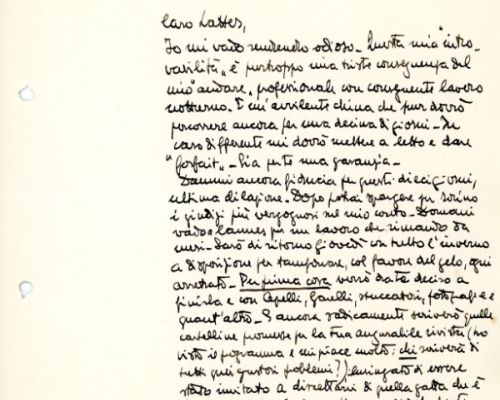 Caro Lattes,
Io mi vado rendendo odioso - Questa mia "intro-
vabilità" è purtroppo una triste conseguenza del
mio "andare" professionale con conseguente lavoro
notturno. È un'avvilente china che pur dovrò
percorrere ancora per una decina di giorni - In
caso differente mi dovrò mettere a letto e dare
"forfait" - Sia per te una garanzia -
Dammi ancora fiducia per questi dieci giorni,
ultima dilazione. Dopo potrai spargere per Torino
i giudizi più vergognosi sul mio conto - Domani
vado a Cannes per un lavoro che rimando da
mesi - Sarò di ritorno Giovedì con tutto l'inverno
a disposizione per tamponare, col favore del gelo, ogni
arretrato - Per prima cosa verrò da te deciso a
finirla e con Apelli, Garelli, stuccatori, fotografie e
quant'altro - E ancora radicalmente scriverò quelle
cartelline promesse per la tua augurabile rivista (ho
visto il programma e mi piace molto; chi scriverà di
tutti quei gustosi problemi?) lusingato di essere
stato invitato a discettarvi di quella gatta che è